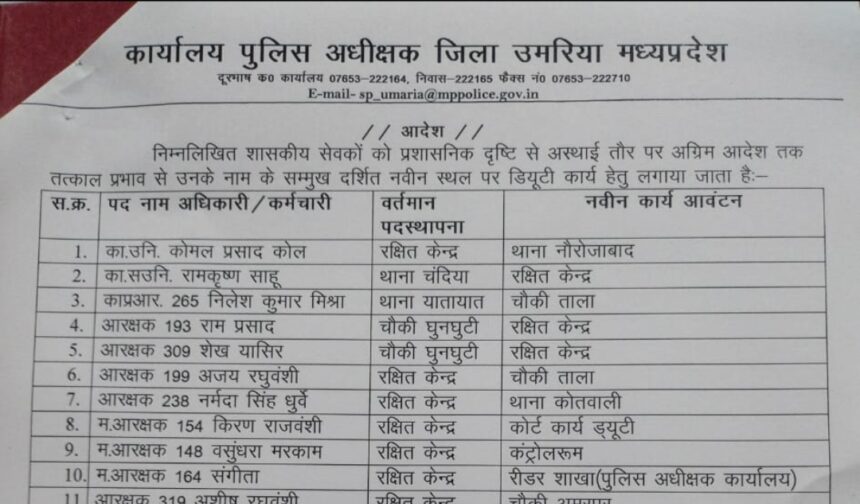 कार्यालय पुलिस अधीक्षक जिला उमरिया मध्यप्रदेश
दूरभाष क0 कार्यालय 07653-222164, निवास-222165 फैक्स नं0 07653-222710
E-mail- sp_umaria@mppolice.gov.in
// आदेश //
निम्नलिखित शासकीय सेवकों को प्रशासनिक दृष्टि से अस्थाई तौर पर अग्रिम आदेश तक
तत्काल प्रभाव से उनके नाम के सम्मुख दर्शित नवीन स्थल पर डियूटी कार्य हेतु लगाया जाता हैः–
स.क्र. पद नाम अधिकारी/कर्मचारी वर्तमान पदस्थापना नवीन कार्य आवंटन
1. का.उनि. कोमल प्रसाद कोल रक्षित केन्द्र थाना नौरोजाबाद
2. का.सउनि. रामकृष्ण साहू थाना चंदिया रक्षित केन्द्र
3. काप्रआर. 265 निलेश कुमार मिश्रा थाना यातायात चौकी ताला
4. आरक्षक 193 राम प्रसाद चौकी घुनघुटी रक्षित केन्द्र
5. आरक्षक 309 शेख यासिर चौकी घुनघुटी रक्षित केन्द्र
6. आरक्षक 199 अजय रघुवंशी रक्षित केन्द्र चौकी ताला
7. आरक्षक 238 नर्मदा सिंह धुर्वे रक्षित केन्द्र थाना कोतवाली
8. म.आरक्षक 154 किरण राजवंशी रक्षित केन्द्र कोर्ट कार्य ड्यूटी
9. म.आरक्षक 148 वसुंधरा मरकाम रक्षित केन्द्र कंट्रोलरूम
10. म.आरक्षक 164 संगीता रक्षित केन्द्र रीडर शाखा(पुलिस अधीक्षक कार्यालय)
11 आरक्षक 319 अशीष रघुवंशी रक्षित केन्द्र चौकी